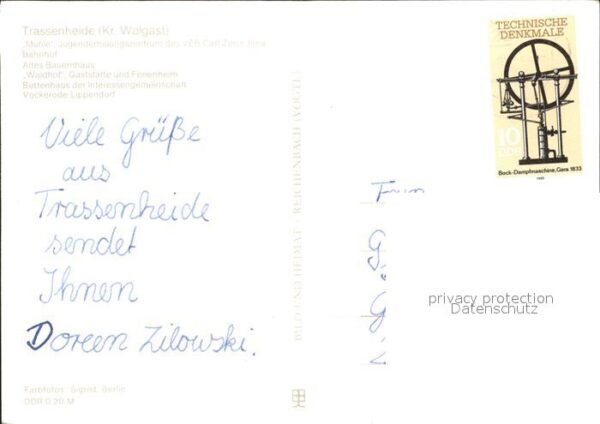 Trassenheide (Kr. Wolgast)
Bahnhof
Altes Bauernhaus
"Waldhof", Gaststätte und Ferienheim
Bettenhaus der Interessengemeinschaft
Vockerode Lippendorf
Viele Grüße
aus
Trassenheide
sendet
Ihnen
Doreen Zilowski.
Farbfotos: Sigrist, Berlin
DDR 0,20 M
BILD UND HEIMAT REICHENBACH (VOGTL)
TECHNISCHE
DENKMALE
10
DDR
Bock-Dampfmaschine, Gera 1833
1985
G
G
privacy protection
Datenschutz